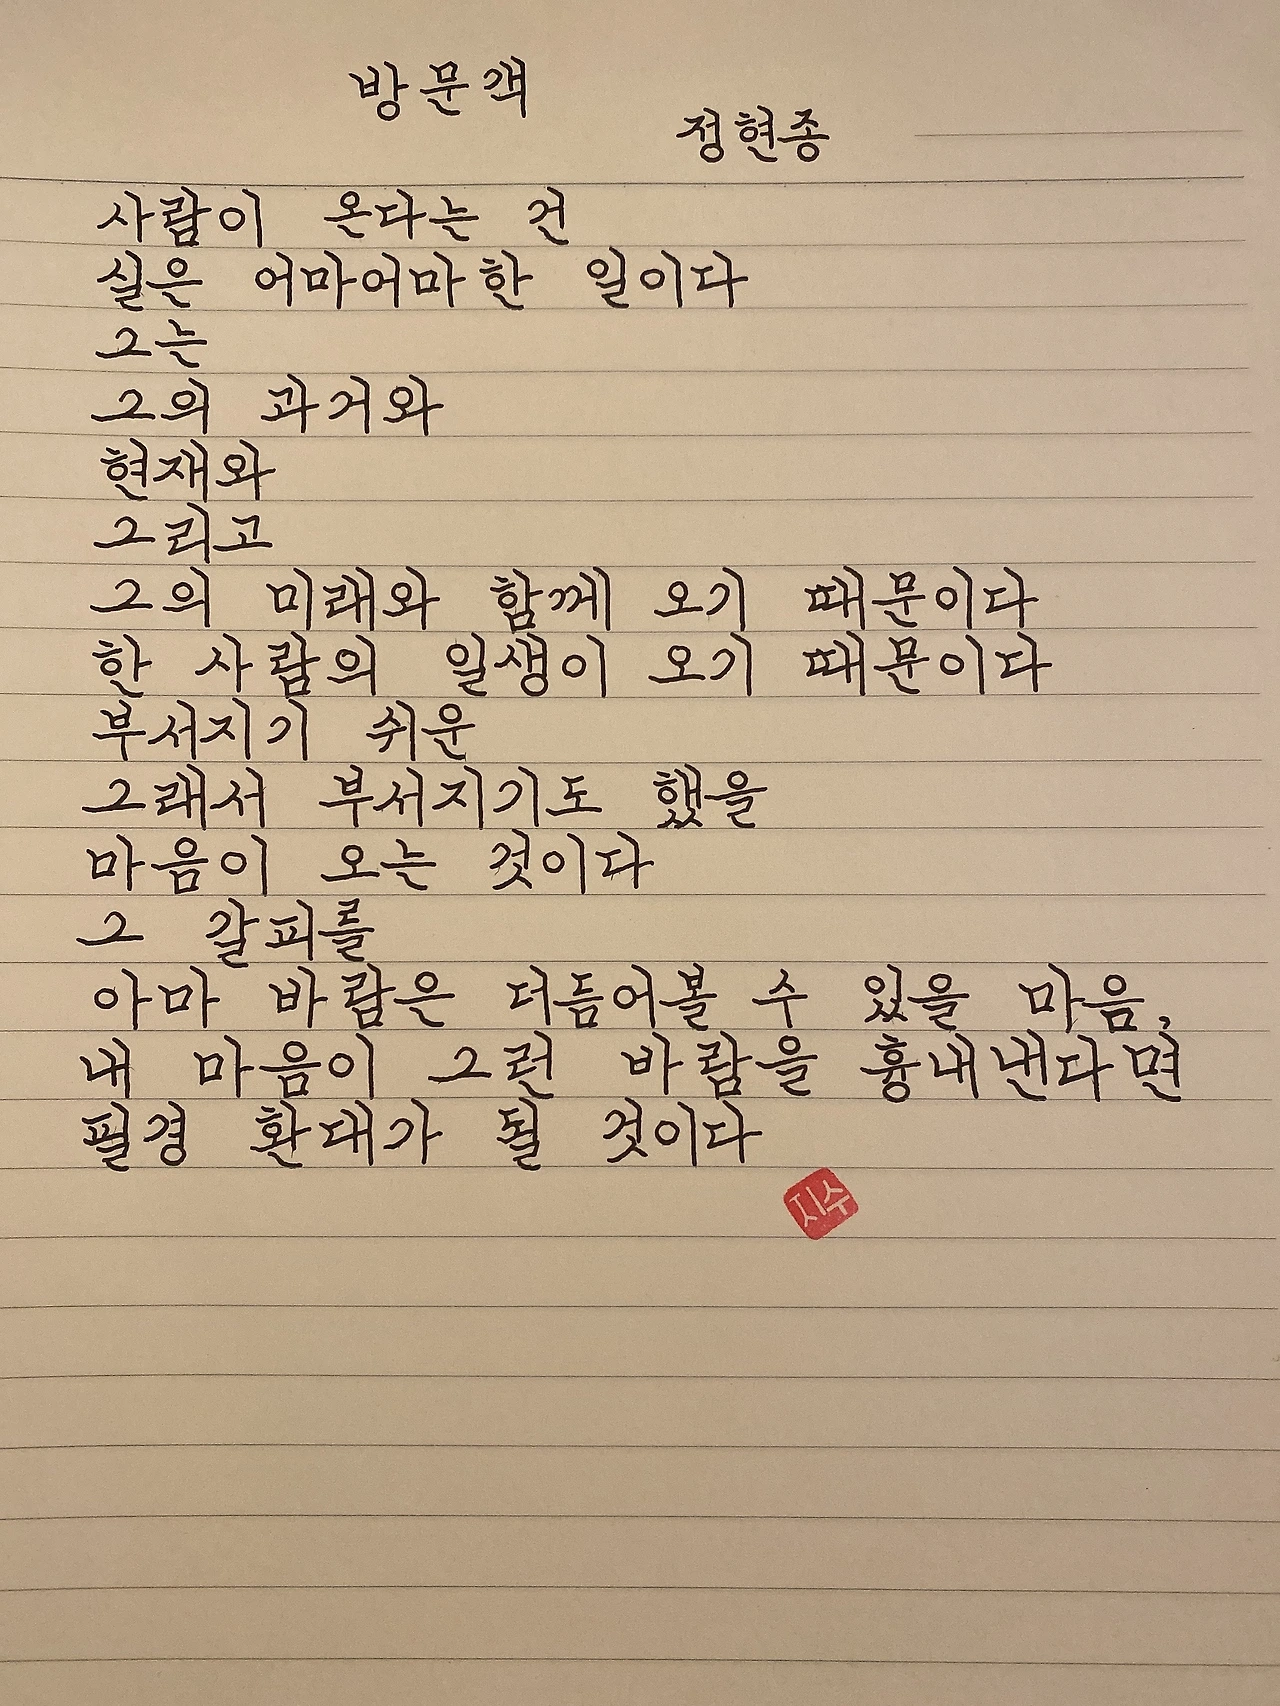 방문객
정현종
사람이 온다는 건
실은 어마어마한 일이다
그는
그의 과거와
현재와
그리고
그의 미래와 함께 오기 때문이다
한 사람의 일생이 오기 때문이다
부서지기 쉬운
그래서 부서지기도 했을
마음이 오는 것이다
그 갈피를
아마 바람은 더듬어볼 수 있을 마음,
내 마음이 그런 바람을 흉내낸다면
필경 환대가 될 것이다
지수